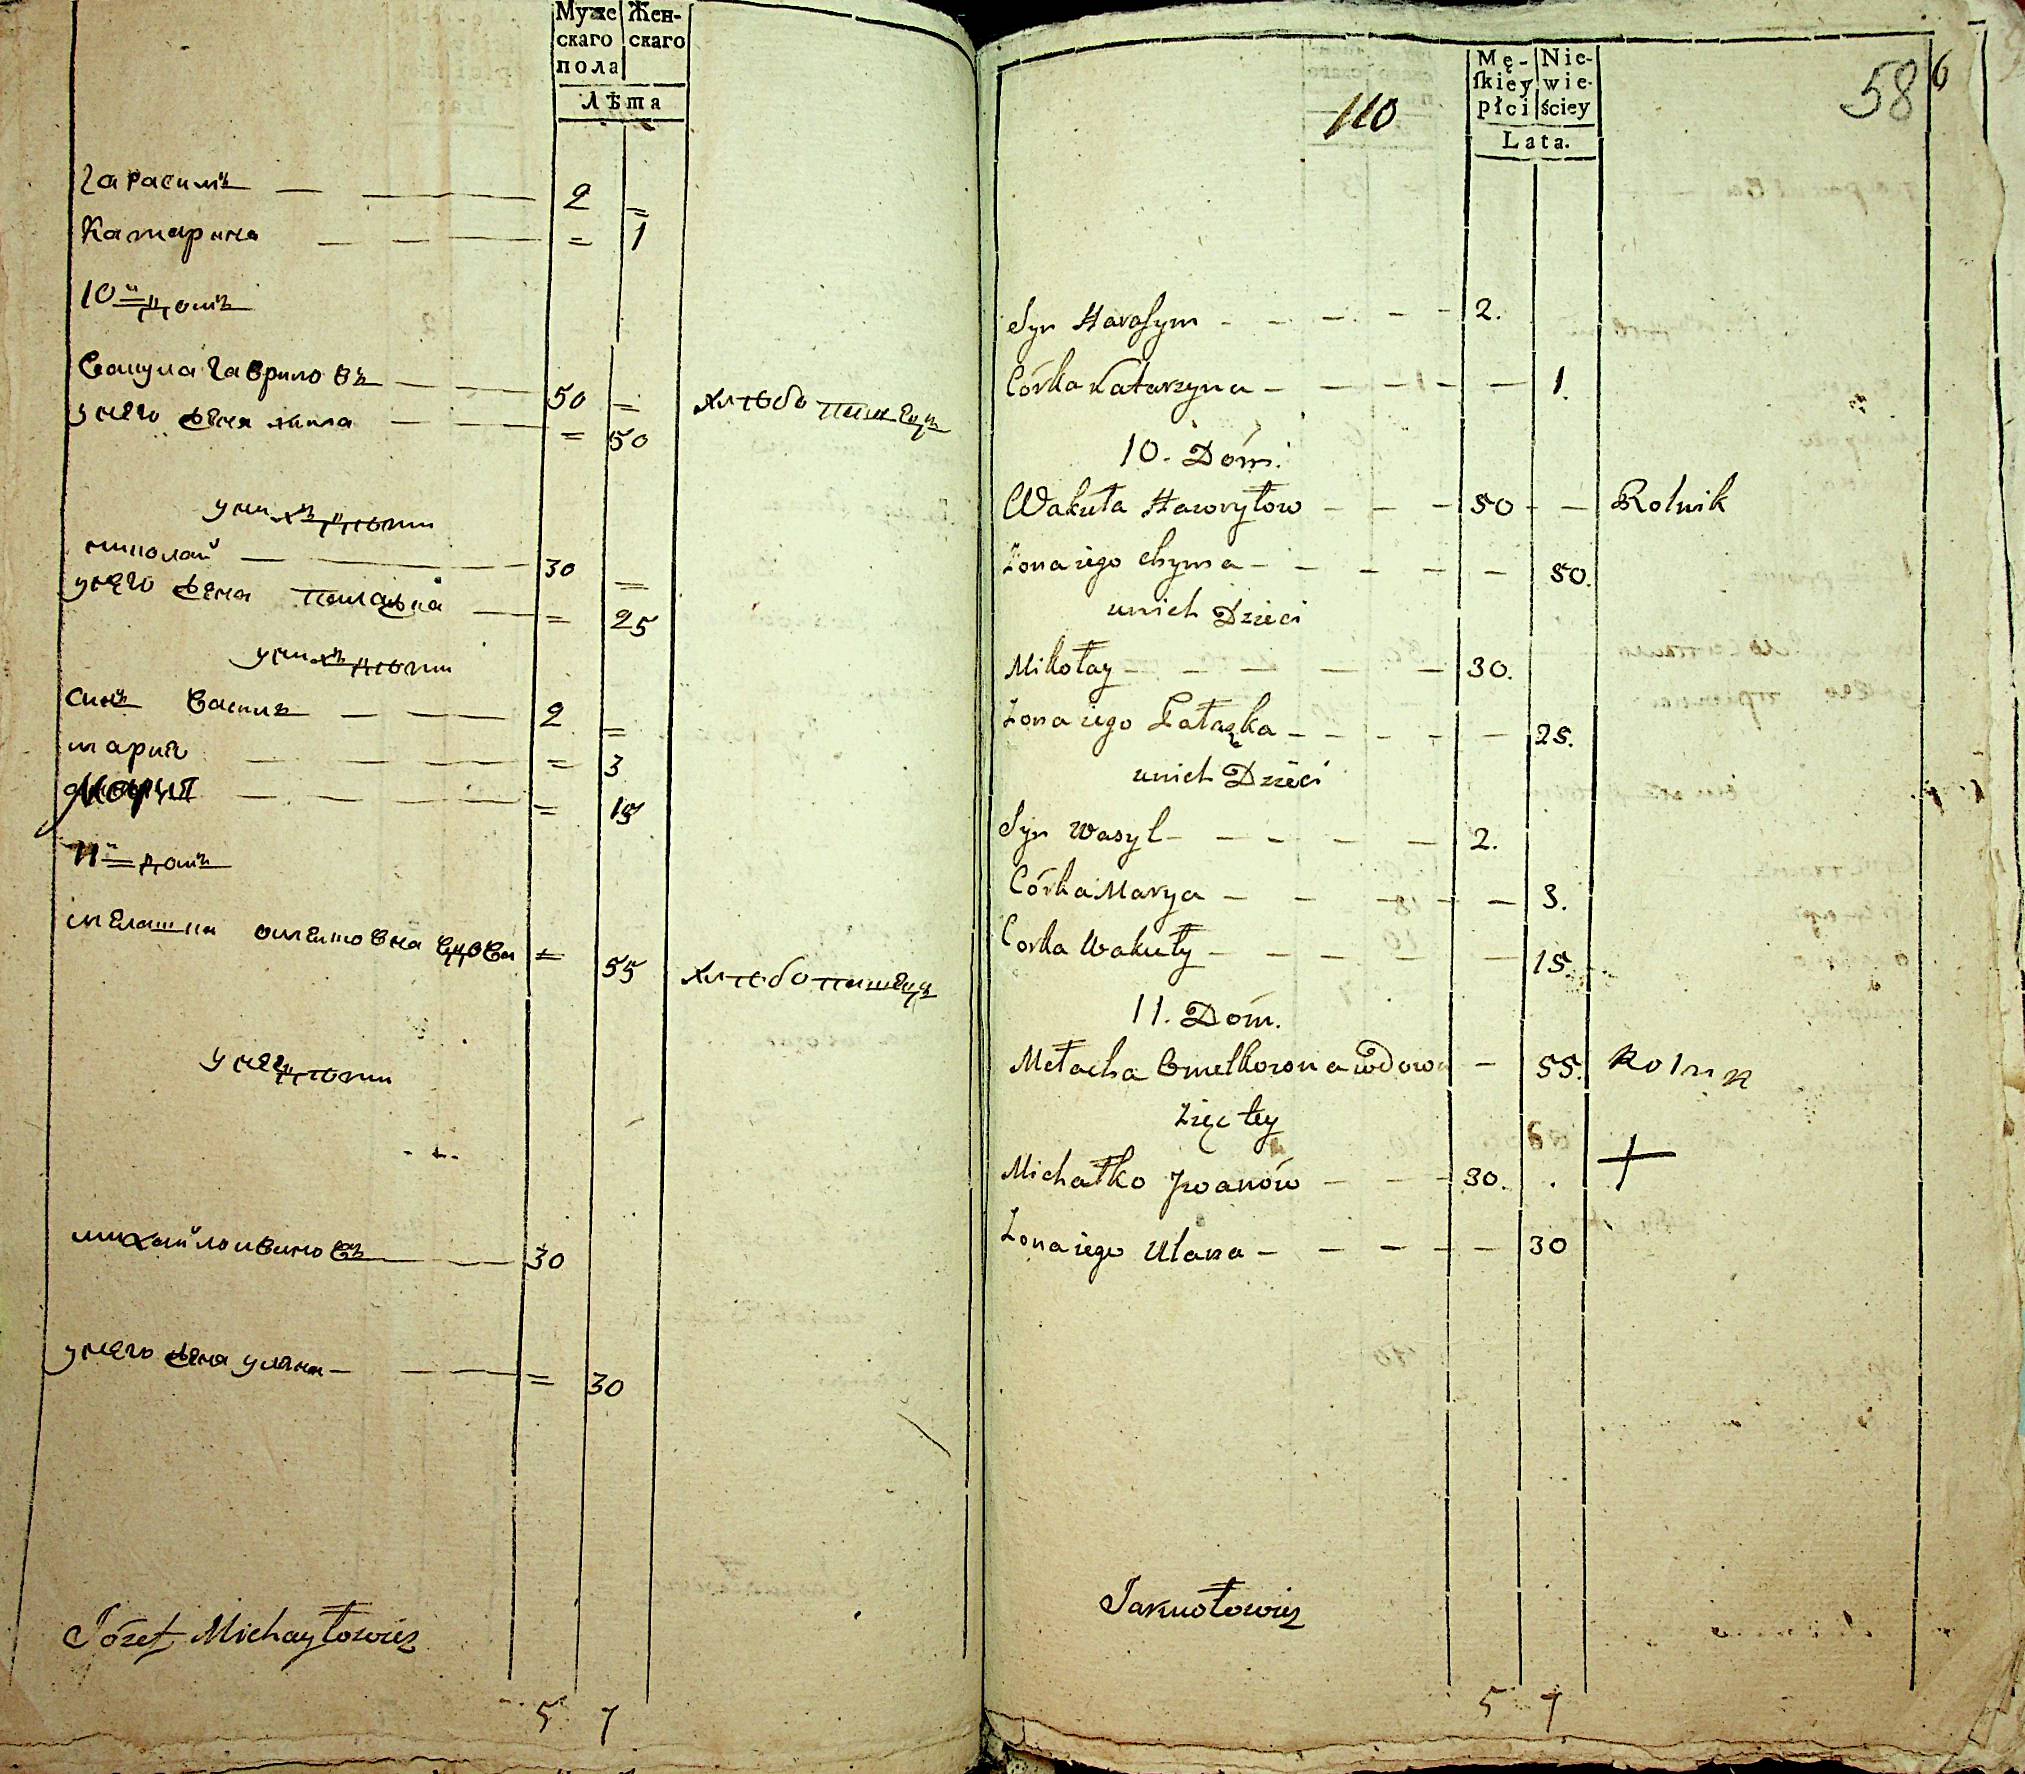 Муже Жен-
скаго скаго
пола
Лѣта
гарасимъ — — 2 =
Катарина — — — = 1
10й домъ
Вакула гавриловъ — — 50 = хлѣбопашецъ
у него жена хима — — = 50
у них дѣти
николай — — 30 =
у него жена палажка — = 25
у нихъ дѣти
синъ василь — — — 2 =
мария — — — = 3
= 15
11й домъ
мелашка омелковна вдова = 55 хлѣбопашецъ
у неи дѣти
михайло ивановъ — — 30
у него жена уляна — — — = 30
Józef Michayłowicz
5 7
110
58
6
Mę- Nie-
skiey wie-
płci ściey
Lata.
Syn Harasym - - - - - 2.
Córka Katarzyna - - - - - 1.
10. Dóm.
Wakuła Hawryłow - - - 50 - - Rolnik
Żona iego Chyma - - - - - 50.
u nich Dzieci
Mikołay - - - - - 30.
Żona iego Pałaszka - - - - - 25.
u nich Dzieci
Syn Wasyl - - - - - 2.
Córka Marya - - - - - 3.
Corka Wakuły - - - - - 15.
11. Dóm.
Mełacha Omelkowna wdowa - 55. Rolnik
Zięc tey
Michałko Jwanów - - - 30. . +
Żona iego Ulana - - - - - 30
5 7